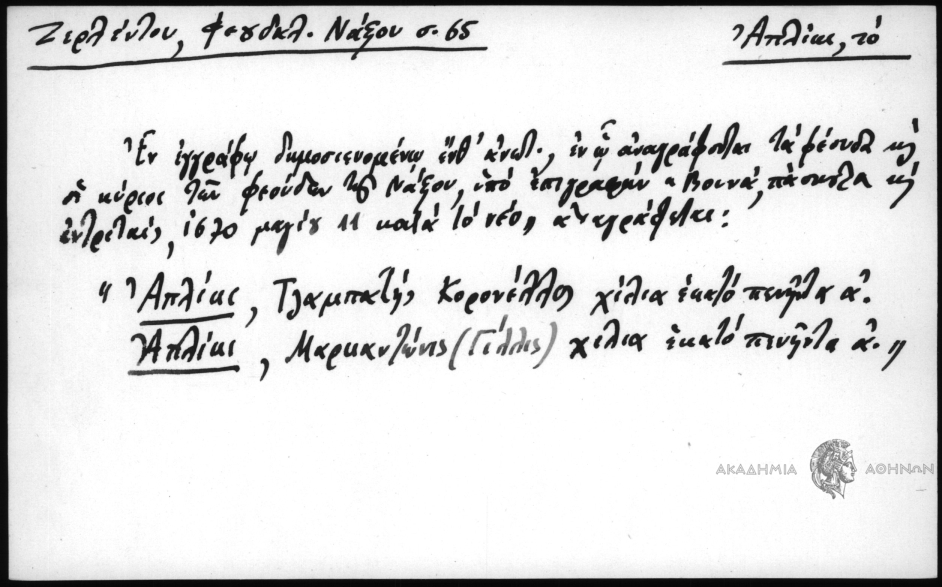 Ζερλέντου, Φεουδαλ. Νάξου σ. 65
Ἀπλίκι, τό
Ἐν ἐγγράφῳ δημοσιευομένῳ ἔνθ' ἀνωτ., ἐν ᾧ ἀναγράφονται τὰ φέουδα κ̀
οἱ κύριοι τῶν φεούδων τῆς Νάξου, ὑπό ἐπιγραφήν « Βουνά, πάσκουλα κ̀
ἐντρίταις, 1670 μαγίου 11 κατά τό νέο» ἀναγράφεται:
« Ἀπλίκι, Τζαμπατής Κορονέλλος χίλια ἑκατό πενῆντα ἀ.
Ἀπλίκι, Μαρκαντώνις (Γίλλις) χίλια ἑκατό πενῆντα ἀ. »
ΑΚΑΔΗΜΙΑ ΑΘΗΝΩΝ